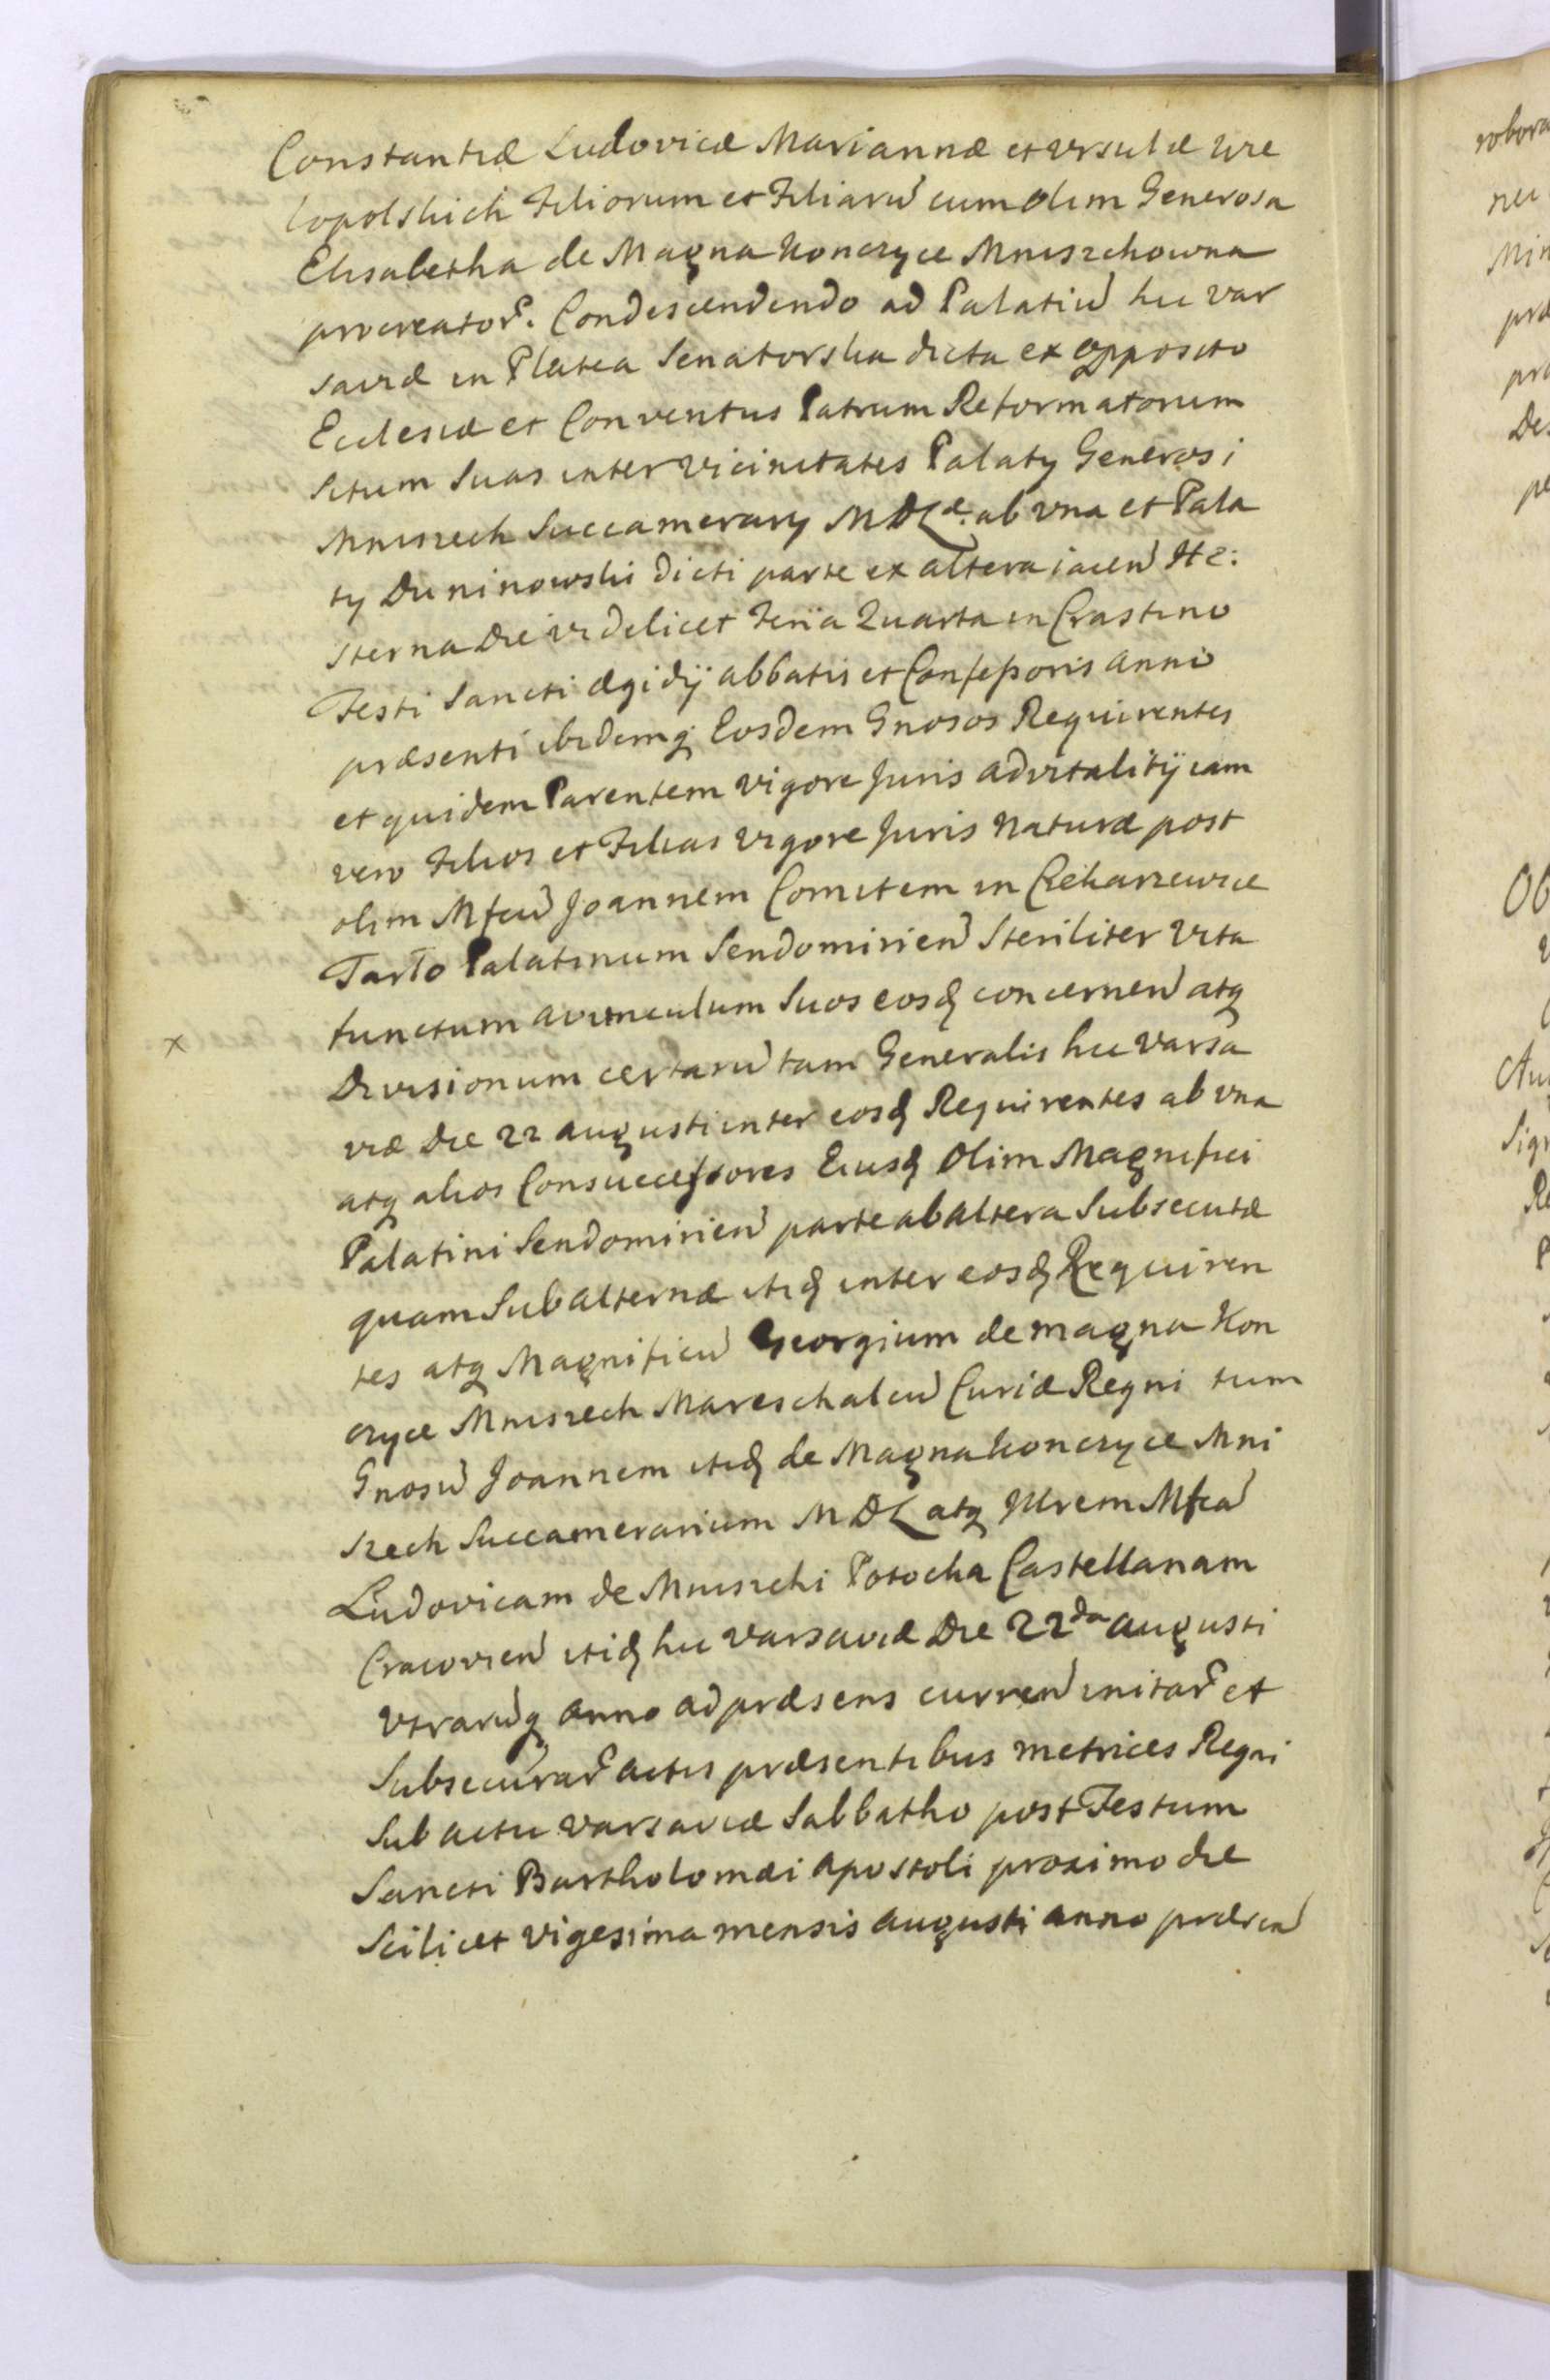 Constantiæ Ludovicæ Mariannæ et Ursulæ Wie
lopolskich Filiorum et Filiarũ cum olim Generosa
Elisabetha de Magna Konczyce Mniszchowna
procreator. Condescendendo ad Palatiũ hic Var
saviæ in Platea Senatorska dicta ex opposito
Ecclesiæ et Conventus Patrum Reformatorum
situm Suas inter vicinitates Palaty Generosi
Mniszech Succamerary MDL ab una et Pala
ty Duninowski dicti parte ex altera iaceñ He:
sterna Die videlicet Feria Quarta in Crastino
Festi Sancti Ægidÿ Abbatis et Confeßoris Anni
præsenti ibidemq Eosdem Gnosos Requirentes
et quidem Parentem vigore Juris Advitalitÿ iam
vero Filios et Filias vigore Juris Naturæ post
olim Mfcũ Joannem Comitem in Czekarzewice
Tarło Palatinum Sendomirień Steriliter vita
functum Avunculum Suos eosq concerneñ atq
Divisionum certarũ tam Generalis hic Varsa
viæ Die 22 Augusti inter eosq Requirentes ab una
atq alios Consuccessores Eiusq Olim Magnifici
Palatini Sendomirień parte ab altera Subsecutæ
quam Subalternæ itiq inter eosq Requiren
tes atq Magnificũ Georgium de Magna Kon
czyce Mniszech Mareschalcũ Curiæ Regni tum
Gnosũ Joannem itiq de Magna Konczyce Mni
szech Succamerarium MDL atq Illrem Mfcã
Ludovicam de Mniszchi Potocka Castellanam
Cracovień itiq hic Varsaviæ Die 22da Augusti
Utrarũq Anno ad præsens curreñ initar et
Subsecutar Actis præsentibus Metrices Regni
Sub actu Varsaviæ Sabbatho post Festum
Sancti Bartholomæi Apostoli proximo die
Scilicet vigesima mensis Augusti Anno præseñ